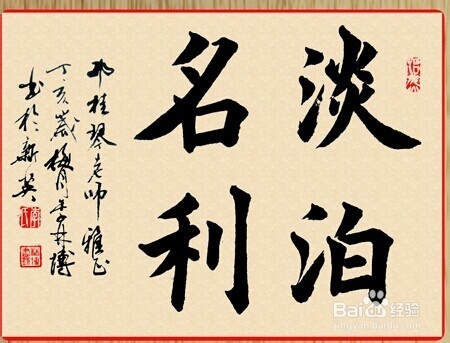 淡泊
名利
桂琴老师雅正
丁亥岁梅月
书于新
Baidu经验
jingyan.baidu.com